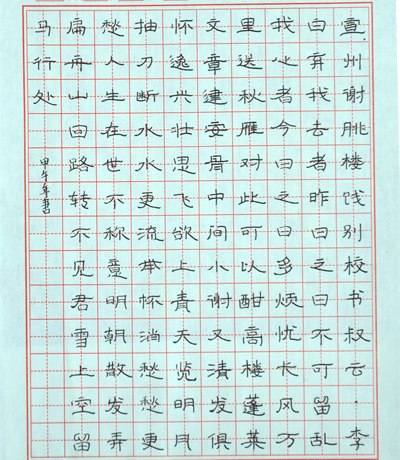 宣州谢朓楼饯别校书叔云·李
白弃我去者昨日之日不可留乱
我心者今日之日多烦忧长风万
里送秋雁对此可以酣高楼蓬莱
文章建安骨中间小谢又清发俱
怀逸兴壮思飞欲上青天览明月
抽刀断水水更流举杯消愁愁更
愁人生在世不称意明朝散发弄
扁舟山回路转不见君雪上空留
马行处
甲午年书